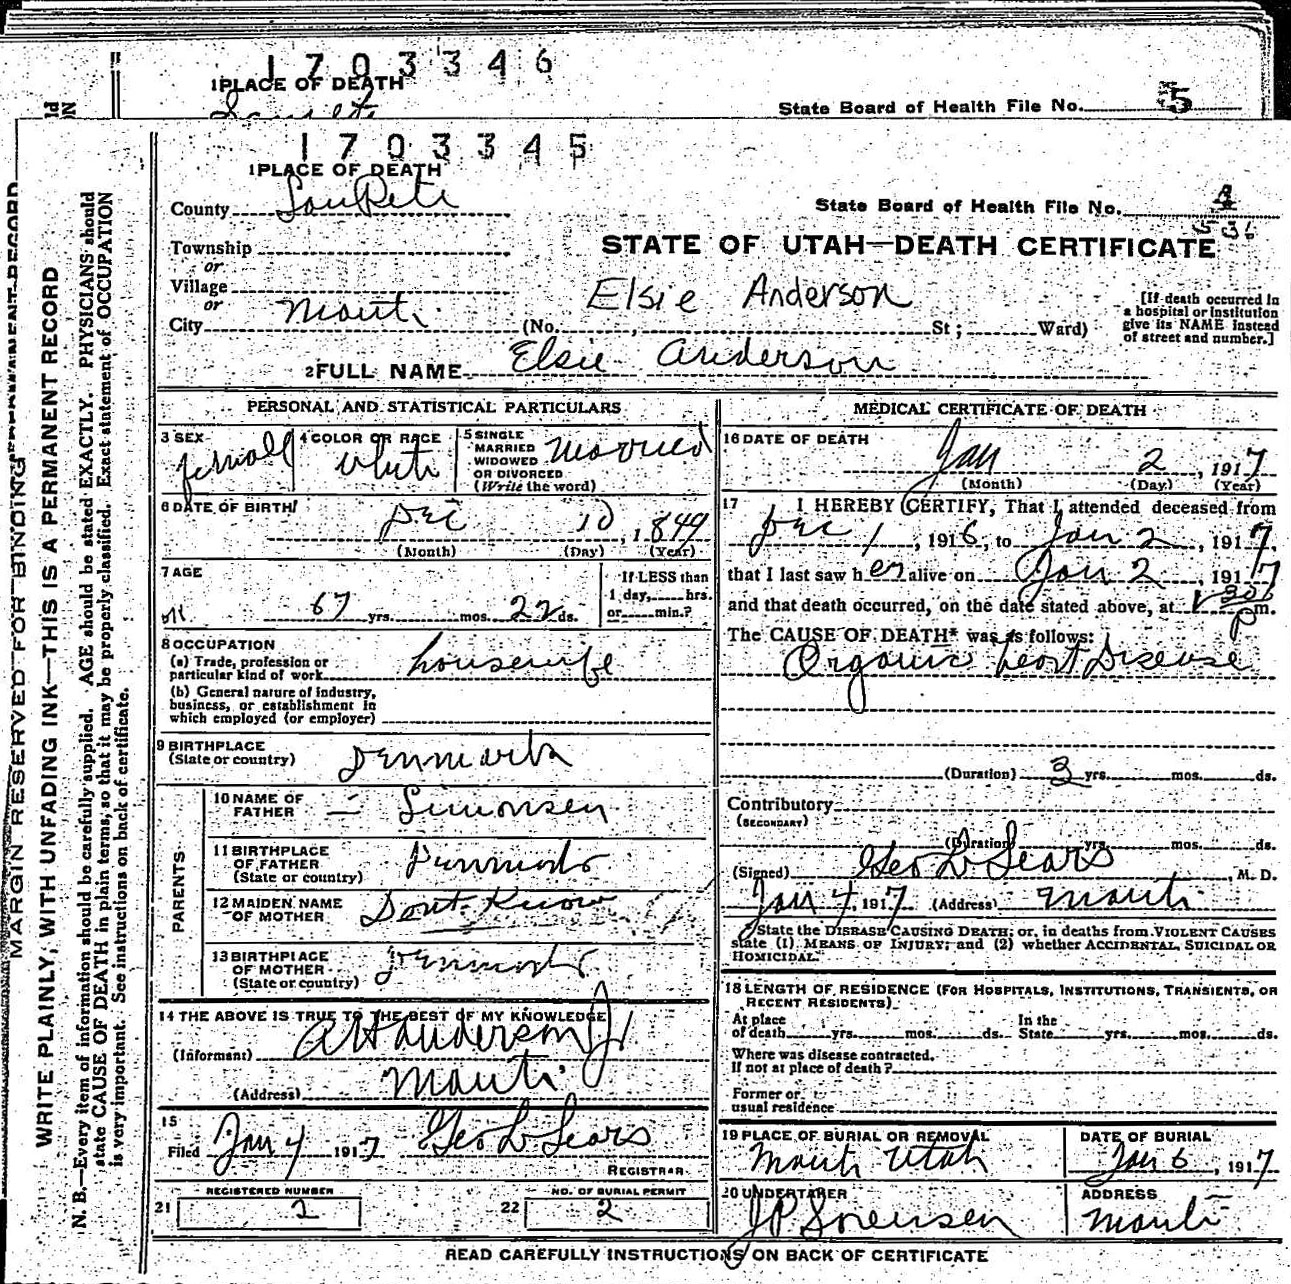 1 7 0 3 3 4 6
1PLACE OF DEATH
State Board of Health File No. 5
1 7 0 3 3 4 5
1PLACE OF DEATH
County SanPete
State Board of Health File No. 4
536
Township
or
STATE OF UTAH—DEATH CERTIFICATE
Village
or
Elsie Anderson
City Manti (No. , St ; Ward)
[If death occurred in
a hospital or institution
give its NAME instead
of street and number.]
2FULL NAME Elsie Anderson
PERSONAL AND STATISTICAL PARTICULARS
3 SEX female
4 COLOR OR RACE white
5 SINGLE
MARRIED
WIDOWED
OR DIVORCED
(Write the word)
Married
6 DATE OF BIRTH
Dec 10, 1849
(Month) (Day) (Year)
7 AGE
67 yrs. mos. 22 ds.
If LESS than
1 day, hrs.
or min.?
8 OCCUPATION
(a) Trade, profession or
particular kind of work housewife
(b) General nature of industry,
business, or establishment in
which employed (or employer)
9 BIRTHPLACE
(State or country) Denmark
PARENTS
10 NAME OF
FATHER — Simonsen
11 BIRTHPLACE
OF FATHER
(State or country) Denmark
12 MAIDEN NAME
OF MOTHER Dont Know
13 BIRTHPLACE
OF MOTHER
(State or country) Denmark
14 THE ABOVE IS TRUE TO THE BEST OF MY KNOWLEDGE
(Informant) A H Anderson Jr
(Address) Manti
15
Filed Jan 4 1917 Geo L Sears
REGISTRAR
21 REGISTERED NUMBER
2
22 NO. OF BURIAL PERMIT
2
MEDICAL CERTIFICATE OF DEATH
16 DATE OF DEATH
Jan 2, 1917
(Month) (Day) (Year)
17 I HEREBY CERTIFY, That I attended deceased from
Dec 1, 1916, to Jan 2, 1917,
that I last saw her alive on Jan 2, 1917
and that death occurred, on the date stated above, at 1 30 P m.
The CAUSE OF DEATH* was as follows:
Organic heart Disease
(Duration) 3 yrs. mos. ds.
Contributory
(SECONDARY)
(Duration) yrs. mos. ds.
(Signed) Geo L Sears, M. D.
Jan 4, 1917 (Address) Manti
*State the DISEASE CAUSING DEATH; or, in deaths from VIOLENT CAUSES
state (1) MEANS OF INJURY; and (2) whether ACCIDENTAL, SUICIDAL OR
HOMICIDAL.
18 LENGTH OF RESIDENCE (FOR HOSPITALS, INSTITUTIONS, TRANSIENTS, OR
RECENT RESIDENTS).
At place In the
of death yrs. mos. ds. State yrs. mos. ds.
Where was disease contracted.
If not at place of death?
Former or
usual residence
19 PLACE OF BURIAL OR REMOVAL
Manti Utah
DATE OF BURIAL
Jan 6, 1917
20 UNDERTAKER
JP Sorensen
ADDRESS
Manti
READ CAREFULLY INSTRUCTIONS ON BACK OF CERTIFICATE
MARGIN RESERVED FOR BINDING
WRITE PLAINLY, WITH UNFADING INK—THIS IS A PERMANENT RECORD
N. B.—Every item of information should be carefully supplied. AGE should be stated EXACTLY. PHYSICIANS should
state CAUSE OF DEATH in plain terms, so that it may be properly classified. Exact statement of OCCUPATION
is very important. See instructions on back of certificate.